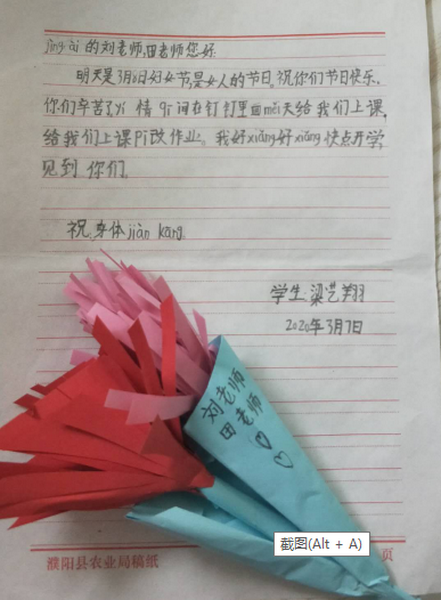 jìng ài 的刘老师,田老师您好.
明天是3月8日妇女节,是女人的节日。祝你们节日快乐,
你们辛苦了yì 情 qī 间在钉钉里面měi天给我们上课,
给我们上课Pī改作业。我好xiǎng好xiǎng快点开学,
见到 你们。
祝:身体jiàn kāng.
学生:梁艺翔
2020年3月7日
刘老师
田老师
截图(Alt + A)
濮阳县农业局稿纸
页